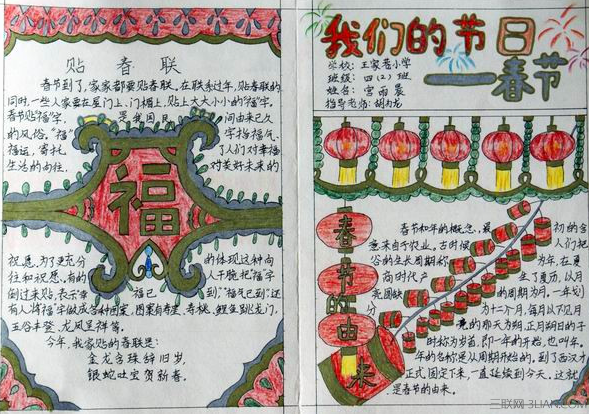 贴春联
春节到了,家家都要贴春联。在联系过年,贴春联的
同时,一些人家要在屋门上、门楣上,贴上大大小小的"福"字。
春节贴"福"字,是我国民间由来已久
的风俗。"福"字指福气、
福运,寄托了人们对幸福
生活的向往,对美好未来的
福
祝愿。为了更充分的体现这种向
往和祝愿,有的人干脆把"福"字
倒过来贴,表示"幸福已到""福气已到"。还
有人将"福"字做成各种图案,图案有寿星、寿桃、鲤鱼跳龙门、
五谷丰登、龙凤呈祥等。
今年,我家贴的春联是:
金龙含珠辞旧岁,
银蛇吐宝贺新春。
我们的节日
——春节
学校:王家巷小学
班级:四(2)班
姓名:宫雨晨
指导老师:胡
春节的由来
春节和年的概念,最初的含
意来自于农业,古时候人们把
谷的生长周期称为年,在夏
商时代产生了夏历,以月
亮圆缺的周期为月,一年划
分为十二个月,每月以不见月
亮的那天为朔,正月朔日的子
时称为岁首,即一年的开始,也叫年。
年的名称是从周朝开始的,到了西汉才
正式固定下来,一直延续到今天。这就
是春节的由来。
三联网 3LIAN.COM